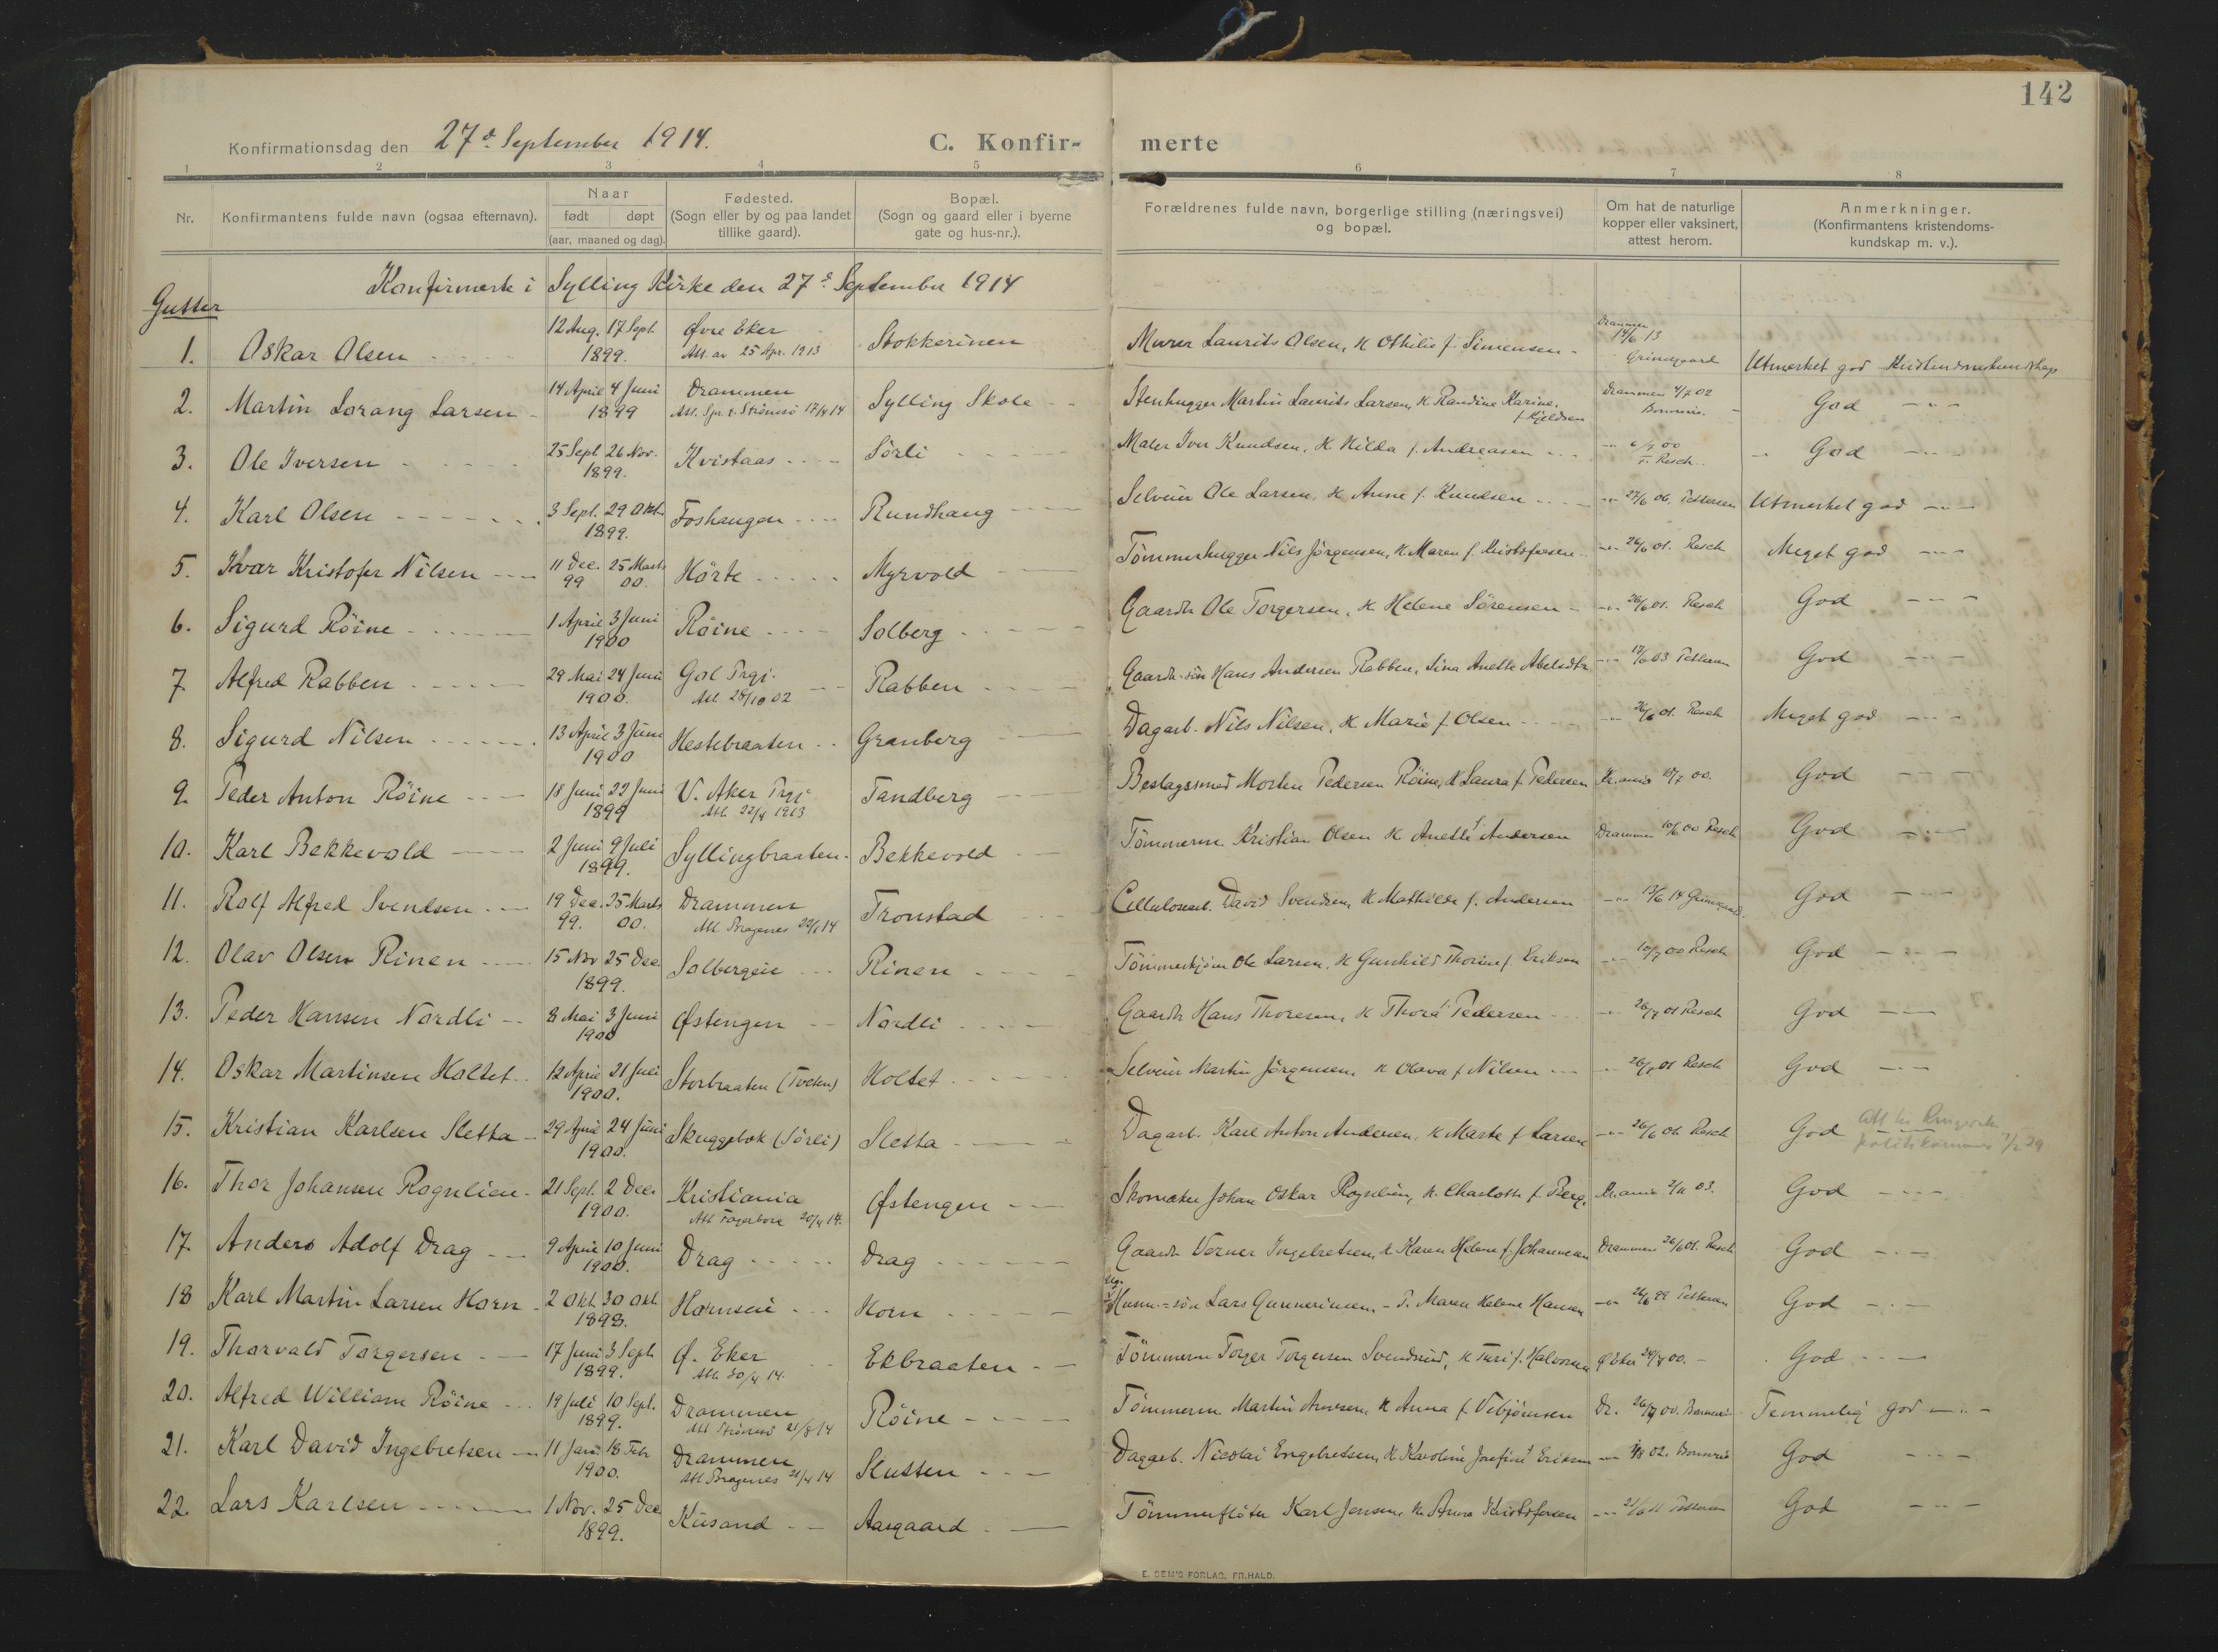 142
Konfirmationsdag den 27de September 1914. C. Konfir- merte
1 2 3 4 5 6 7 8
Nr. Konfirmantens fulde navn (ogsaa efternavn). Naar født døpt (aar, maaned og dag). Fødested. (Sogn eller by og paa landet tillike gaard). Bopæl. (Sogn og gaard eller i byerne gate og hus-nr.). Forældrenes fulde navn, borgerlige stilling (næringsvei) og bopæl. Om hat de naturlige kopper eller vaksinert, attest herom. Anmerkninger. (Konfirmantens kristendoms- kundskap m. v.).
Konfirmerte i Sylling Kirke den 27de September 1914
Gutter
1. Oskar Olsen 12 Aug. 17 Sept. 1899. Øvre Eker Att. av 25 Apr. 1913 Stokkerinen Murer Laurits Olsen, H Othilie f. Simensen Drammen 14/6 13 Grimsgaard Utmerket god Kristendomskundskap
2. Martin Lorang Larsen 14 April 4 Juni 1899 Drammen Att. Spr. t. Strømsø 17/4 14 Sylling Skole Stenhugger Martin Laurits Larsen, H Randine Karine f. Kjeldsen Drammen 4/7 02 God
3. Ole Iversen 25 Sept 26 Nov. 1899. Kvistaas Sörli Maler Iver Knudsen, H Hilda f. Andreasen 6/7 00 Resch God
4. Karl Olsen 3 Sept. 29 Okt. 1899. Foshaugen Rundhaug Selveier Ole Larsen, H Anne f. Knudsen 27/6 06. Pettersen Utmerket god
5. Ivar Kristofer Nilsen 11 Dec. 99 25 Marts 00. Hörte Myrvold Tömmerhugger Nils Jörgensen, H Maren f. Kristofersen 26/6 01. Resch Meget god
6. Sigurd Röine 1 April 3 Juni 1900 Röine Solberg Gaardbr Ole Torgersen, H Helene Sörensen 26/6 01. Resch God
7. Alfred Rabben 29 Mai 24 Juni 1900. Gol Prgj. Att. 28/10 02 Rabben Gaardbr.sön Hans Andersen Rabben, Sina Anette Abelsdtr 17/6 03 Pettersen God
8. Sigurd Nilsen 13 April 3 Juni 1900 Hestebraaten Granberg Dagarb. Nils Nilsen, H Marie f. Olsen 26/6 01. Resch Meget god
9. Peder Anton Röine 18 Juni 22 Juni 1899 V. Aker Prgj. Att. 22/4 1913 Tandberg Beslagsmed Morten Pedersen Röine, H Laura f. Pedersen Kr.ania 18/7 00. God
10. Karl Bekkevold 2 Juni 9 Juli 1899. Syllingbraaten Bekkevold Tömmerm. Kristian Olsen H Anette f. Andersen Drammen 10/6 00 Resch God
11. Rolf Alfred Svendsen 19 Dec. 99. 25 Marts 00. Drammen Att Bragenes 22/4 14 Tronstad Cellulosearb. David Svendsen, H Mathilde f. Andersen 13/6 14 Grimsgaard God
12. Olav Olsen Rinen 15 Nov 25 Dec. 1899. Solbergeie Rinen Tömmerkjörer Ole Larsen, H Gunhild Thorine f. Eriksen 10/7 00 Resch God
13. Peder Hansen Nordli 8 Mai 3 Juni 1900 Østengen Nordli Gaardbr Hans Thoresen, H Thora f. Pedersen 26/7 01 Resch God
14. Oskar Martinsen Holtet 12 April 21 Juli 1900. Storbraaten (Tveten) Holtet Selveier Martin Jörgensen, H Olava f. Nilsen 26/7 01 Resch God
15. Kristian Karlsen Sletta 29 April 24 Juni 1900. Skuggebok (Sörli) Sletta Dagarb. Karl Anton Andersen, H Marte f. Larsen 26/6 01 Resch God Att til Ringerike politikammer 7/2 29
16. Thor Johansen Rognlien 21 Sept. 2 Dec. 1900. Kristiania Att Fagerborg 20/4 14. Østengen Skomaker Johan Oskar Rognlien, H. Charlotte f. Berg. Kr.ania 2/11 03. God
17. Anders Adolf Drag 9 April 10 Juni 1900. Drag Drag Gaardbr Verner Ingebretsen, H Karen Helene f. Johannesen Drammen 26/6 01. Resch God
18 Karl Martin Larsen Horn 2 Okt 30 Okt. 1898. Hornseie Horn Ug. Husm.=sön Lars Gunnerinsen - P. Maren Helene Hansen 26/6 99 Pettersen God
19. Thorvald Torgersen 17 Juni 3 Sept. 1899. Ø. Eker Att. 30/4 14. Ekbraaten Tömmerm Torger Torgersen Svendsrud, H Turi f. Halvorsen Ø Eker 24/8 00. God
20. Alfred William Röine 19 Juli 10 Sept. 1899. Drammen Att Strömsö 21/8 14 Röine Tömmerm Martin Arnesen H Anna f. Vebjörnsen Dr. 26/7 00. Temmelig god
21. Karl David Ingebretsen 11 Jan. 18 Febr 1900. Drammen Att Bragenes 21/4 14 Slutten Dagarb. Nicolai Engebretsen, H Karoline Josefine f. Eriksen 1/8 02. God
22. Lars Karlsen 1 Nov. 25 Dec 1899. Kusand Aasgaard Tömmerflöter Karl Jensen, H. Anna Kristofersen 21/6 11 Pettersen God
E. SEM'S FORLAG, FR.HALD.